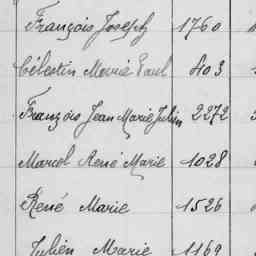 François Joseph 1760
Célestin Marie Paul 803
François Jean Marie Julien 2272
Marcel René Marie 1028
René Marie 1526
Julien Marie 1169